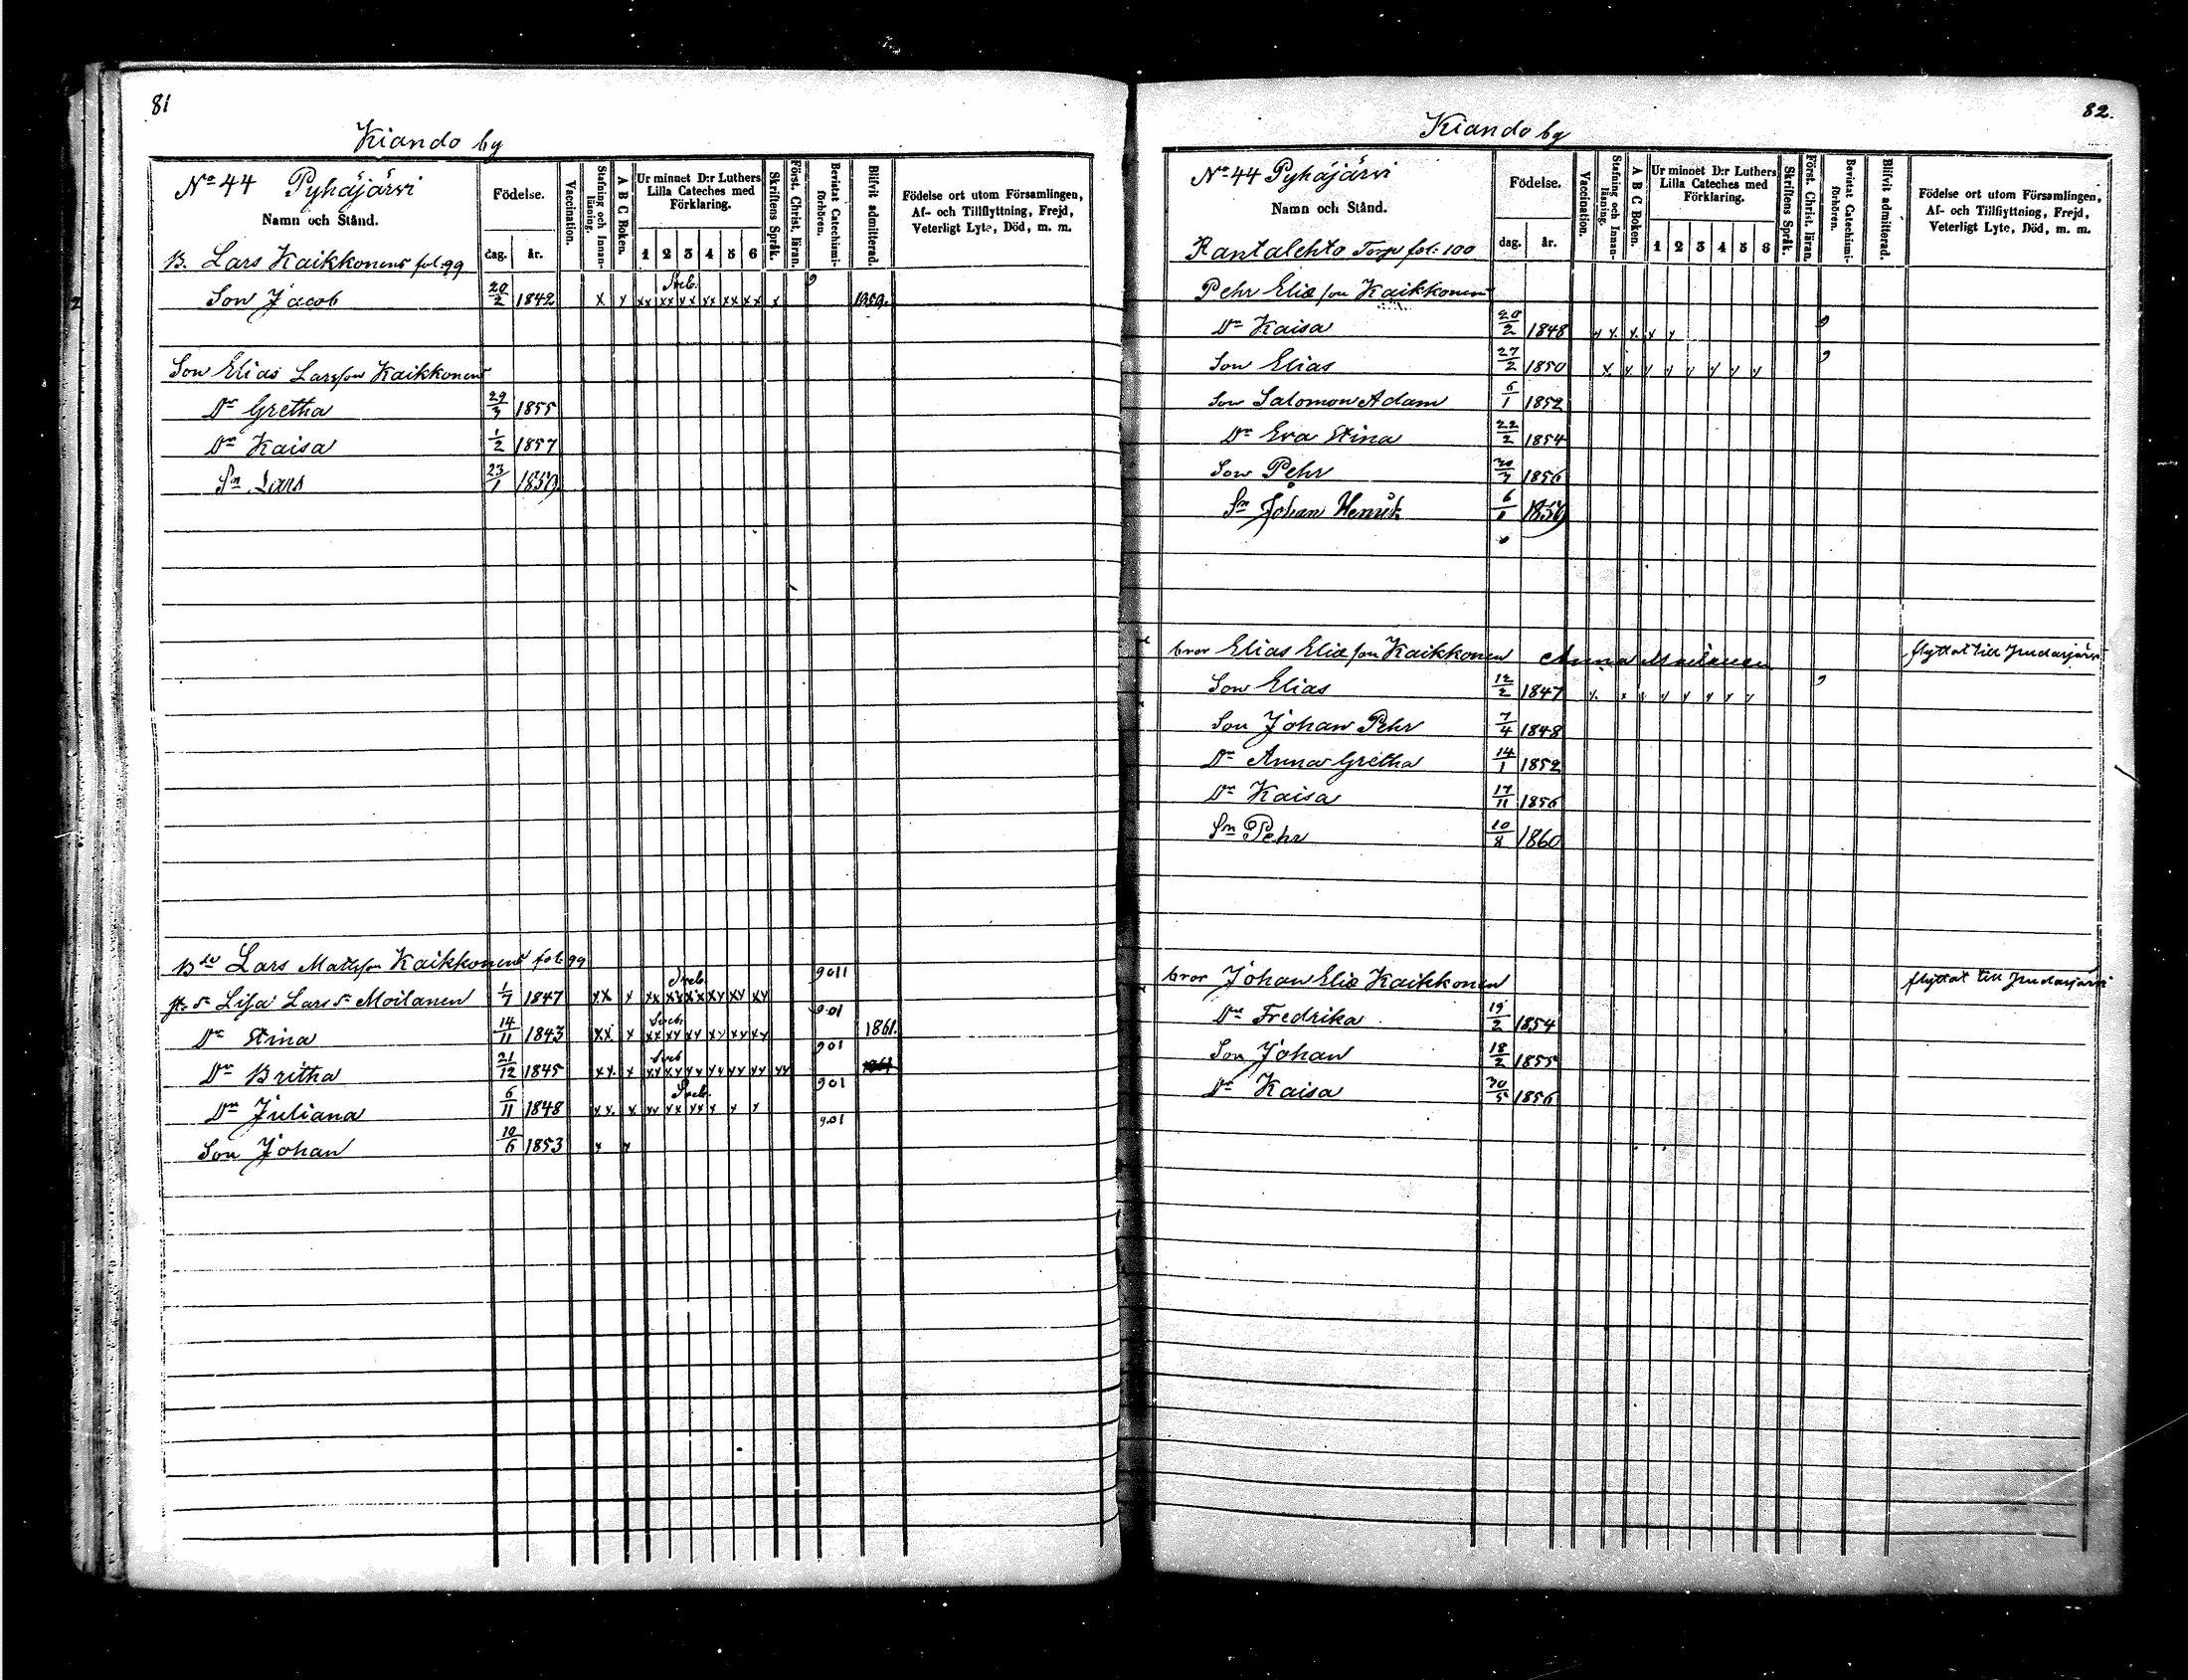 81
Kiando by
No 44 Pyhäjärvi
Namn och Stånd.
Födelse.
dag.
år.
Vaccination.
Stafning och Innanläsning.
A B C Boken.
Ur minnet D:r Luthers Lilla Cateches med Förklaring.
1 2 3 4 5 6
Skriftens Språk.
Först. Christ. läran.
Bevistat Catechimiförhören.
Blifvit admitterad.
Födelse ort utom Församlingen, Af- och Tillflyttning, Frejd, Veterligt Lyte, Död, m. m.
B. Lars Kaikkonens fol. 99
Son Jacob 20/2 1842 x x xx xx xx xx xx xx x 1859.
Son Elias Larsson Kaikkonens
Dr Gretha 29/3 1855
Dr Kaisa 1/2 1857
Sn Lars 23/1 1859
Bde Lars Mattsson Kaikkonens fol. 99
Lisa Lars Dr Moilanen 1/7 1847 xx x xx xx xx xx xx xx 9011
Dr Stina 14/11 1843 xx x xx xx xx xx xx xx 901 1861.
Dr Britha 21/12 1845 xx x xx xx xx xx xx xx xx 901
Dr Juliana 6/11 1848 xx x xx xx xx x x x 901
Son Johan 10/6 1853 x x 901
82.
Kiando by
No 44 Pyhäjärvi
Namn och Stånd.
Födelse.
dag.
år.
Vaccination.
Stafning och Innanläsning.
A B C Boken.
Ur minnet D:r Luthers Lilla Cateches med Förklaring.
1 2 3 4 5 6
Skriftens Språk.
Först. Christ. läran.
Bevistat Catechimiförhören.
Blifvit admitterad.
Födelse ort utom Församlingen, Af- och Tillflyttning, Frejd, Veterligt Lyte, Död, m. m.
Rantalehto Torp fol: 100
Pehr Eliæson Kaikkonens
Dr Kaisa 20/2 1848 x x x x x 9
Son Elias 27/2 1850 x x x x x x x x 9
Son Salomon Adam 6/1 1852
Dr Eva Stina 22/2 1854
Son Pehr 30/3 1856
Sn Johan Henrik 6/1 1859
bror Elias Eliæson Kaikkonen Anna Moilanen flyttat till Pudasjärvi
Son Elias 12/2 1847 x x x x x x x x 9
Son Johan Pehr 7/4 1848
Dr Anna Gretha 14/1 1852
Dr Kaisa 17/11 1856
Sn Pehr 10/8 1860
bror Johan Eliæ Kaikkonen flyttat till Pudasjärvi
Dr Fredrika 19/2 1854
Son Johan 18/2 1855
Dr Kaisa 30/5 1856